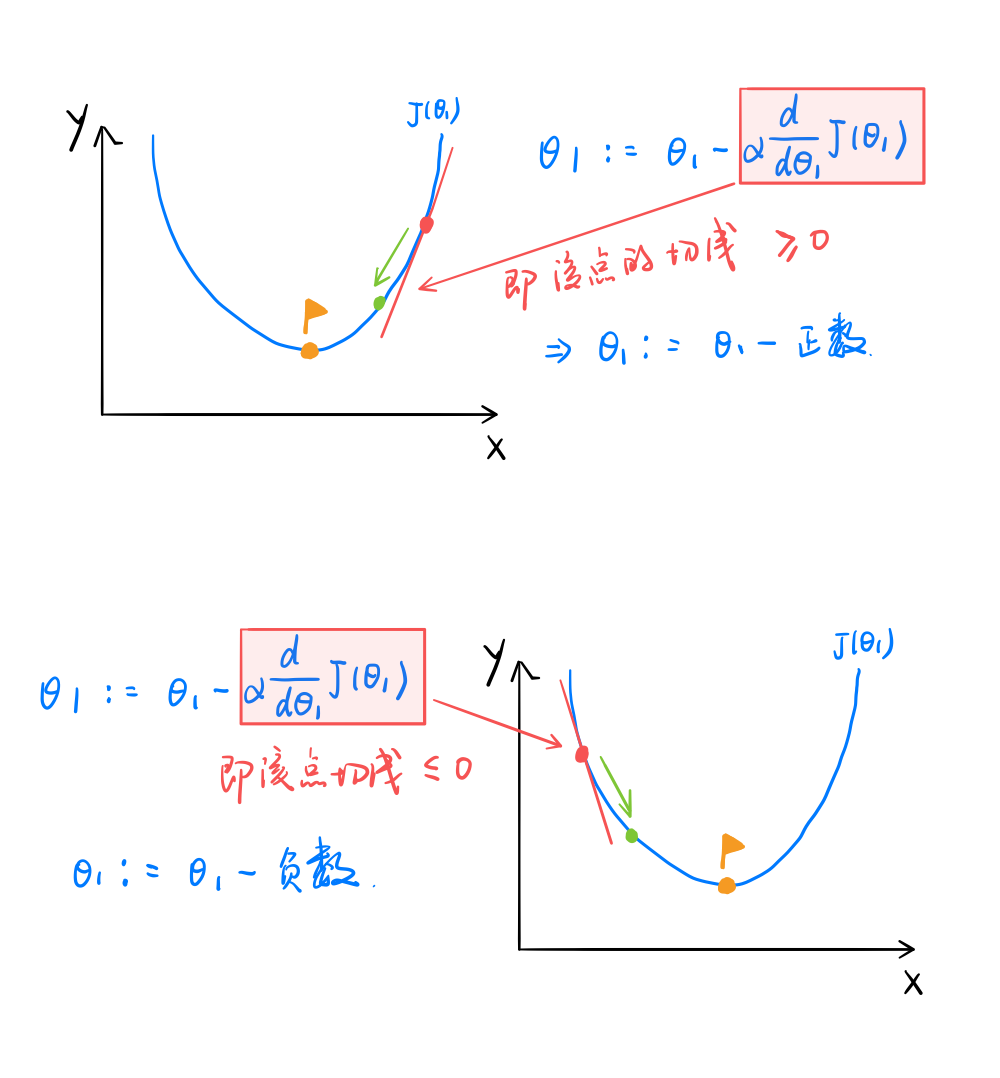 y
J(θ₁)
θ₁ := θ₁ - α d/dθ₁ J(θ₁)
即该点的切线 ≥0
⇒ θ₁ := θ₁ - 正数.
x
θ₁ := θ₁ - α d/dθ₁ J(θ₁)
即该点切线 ≤0
θ₁ := θ₁ - 负数.
y
J(θ₁)
x